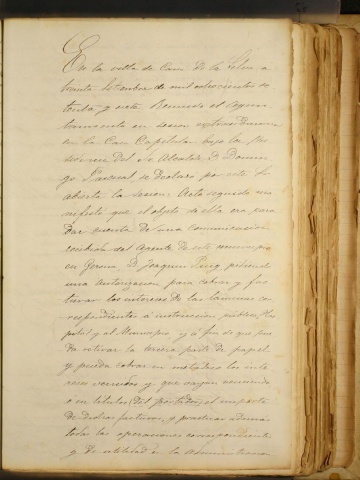 En la villa de Cassá de la Selva a
treinta Setiembre de mil ochocientos se
tenta y siete. Reunido el Ayun
tamiento en sesion extraordinaria
en la Casa Capitular bajo la pre
sidencia del Sr. Alcalde D. Domin
go Pascual se declaró por este
abierta la sesion. Acto seguido ma
nifestó que el objeto de ella era para
dar cuenta de una comunicacion
recibida del Agente de este municipio
en Gerona D. Joaquin Puig pidiendo
una autorizacion para cobrar y fac
turar los intereses de las láminas cor
respondientes á instruccion pública, Hos
pital y al Municipio y á fin de que pue
da retirar la tercera parte de papel
y pueda cobrar en metálico los inte
reses vencidos y que vayan venciendo
ó en títulos del portador, el importe
de dichas facturas, y practicar además
todas las operaciones correspondientes
y de utilidad á la Administracion